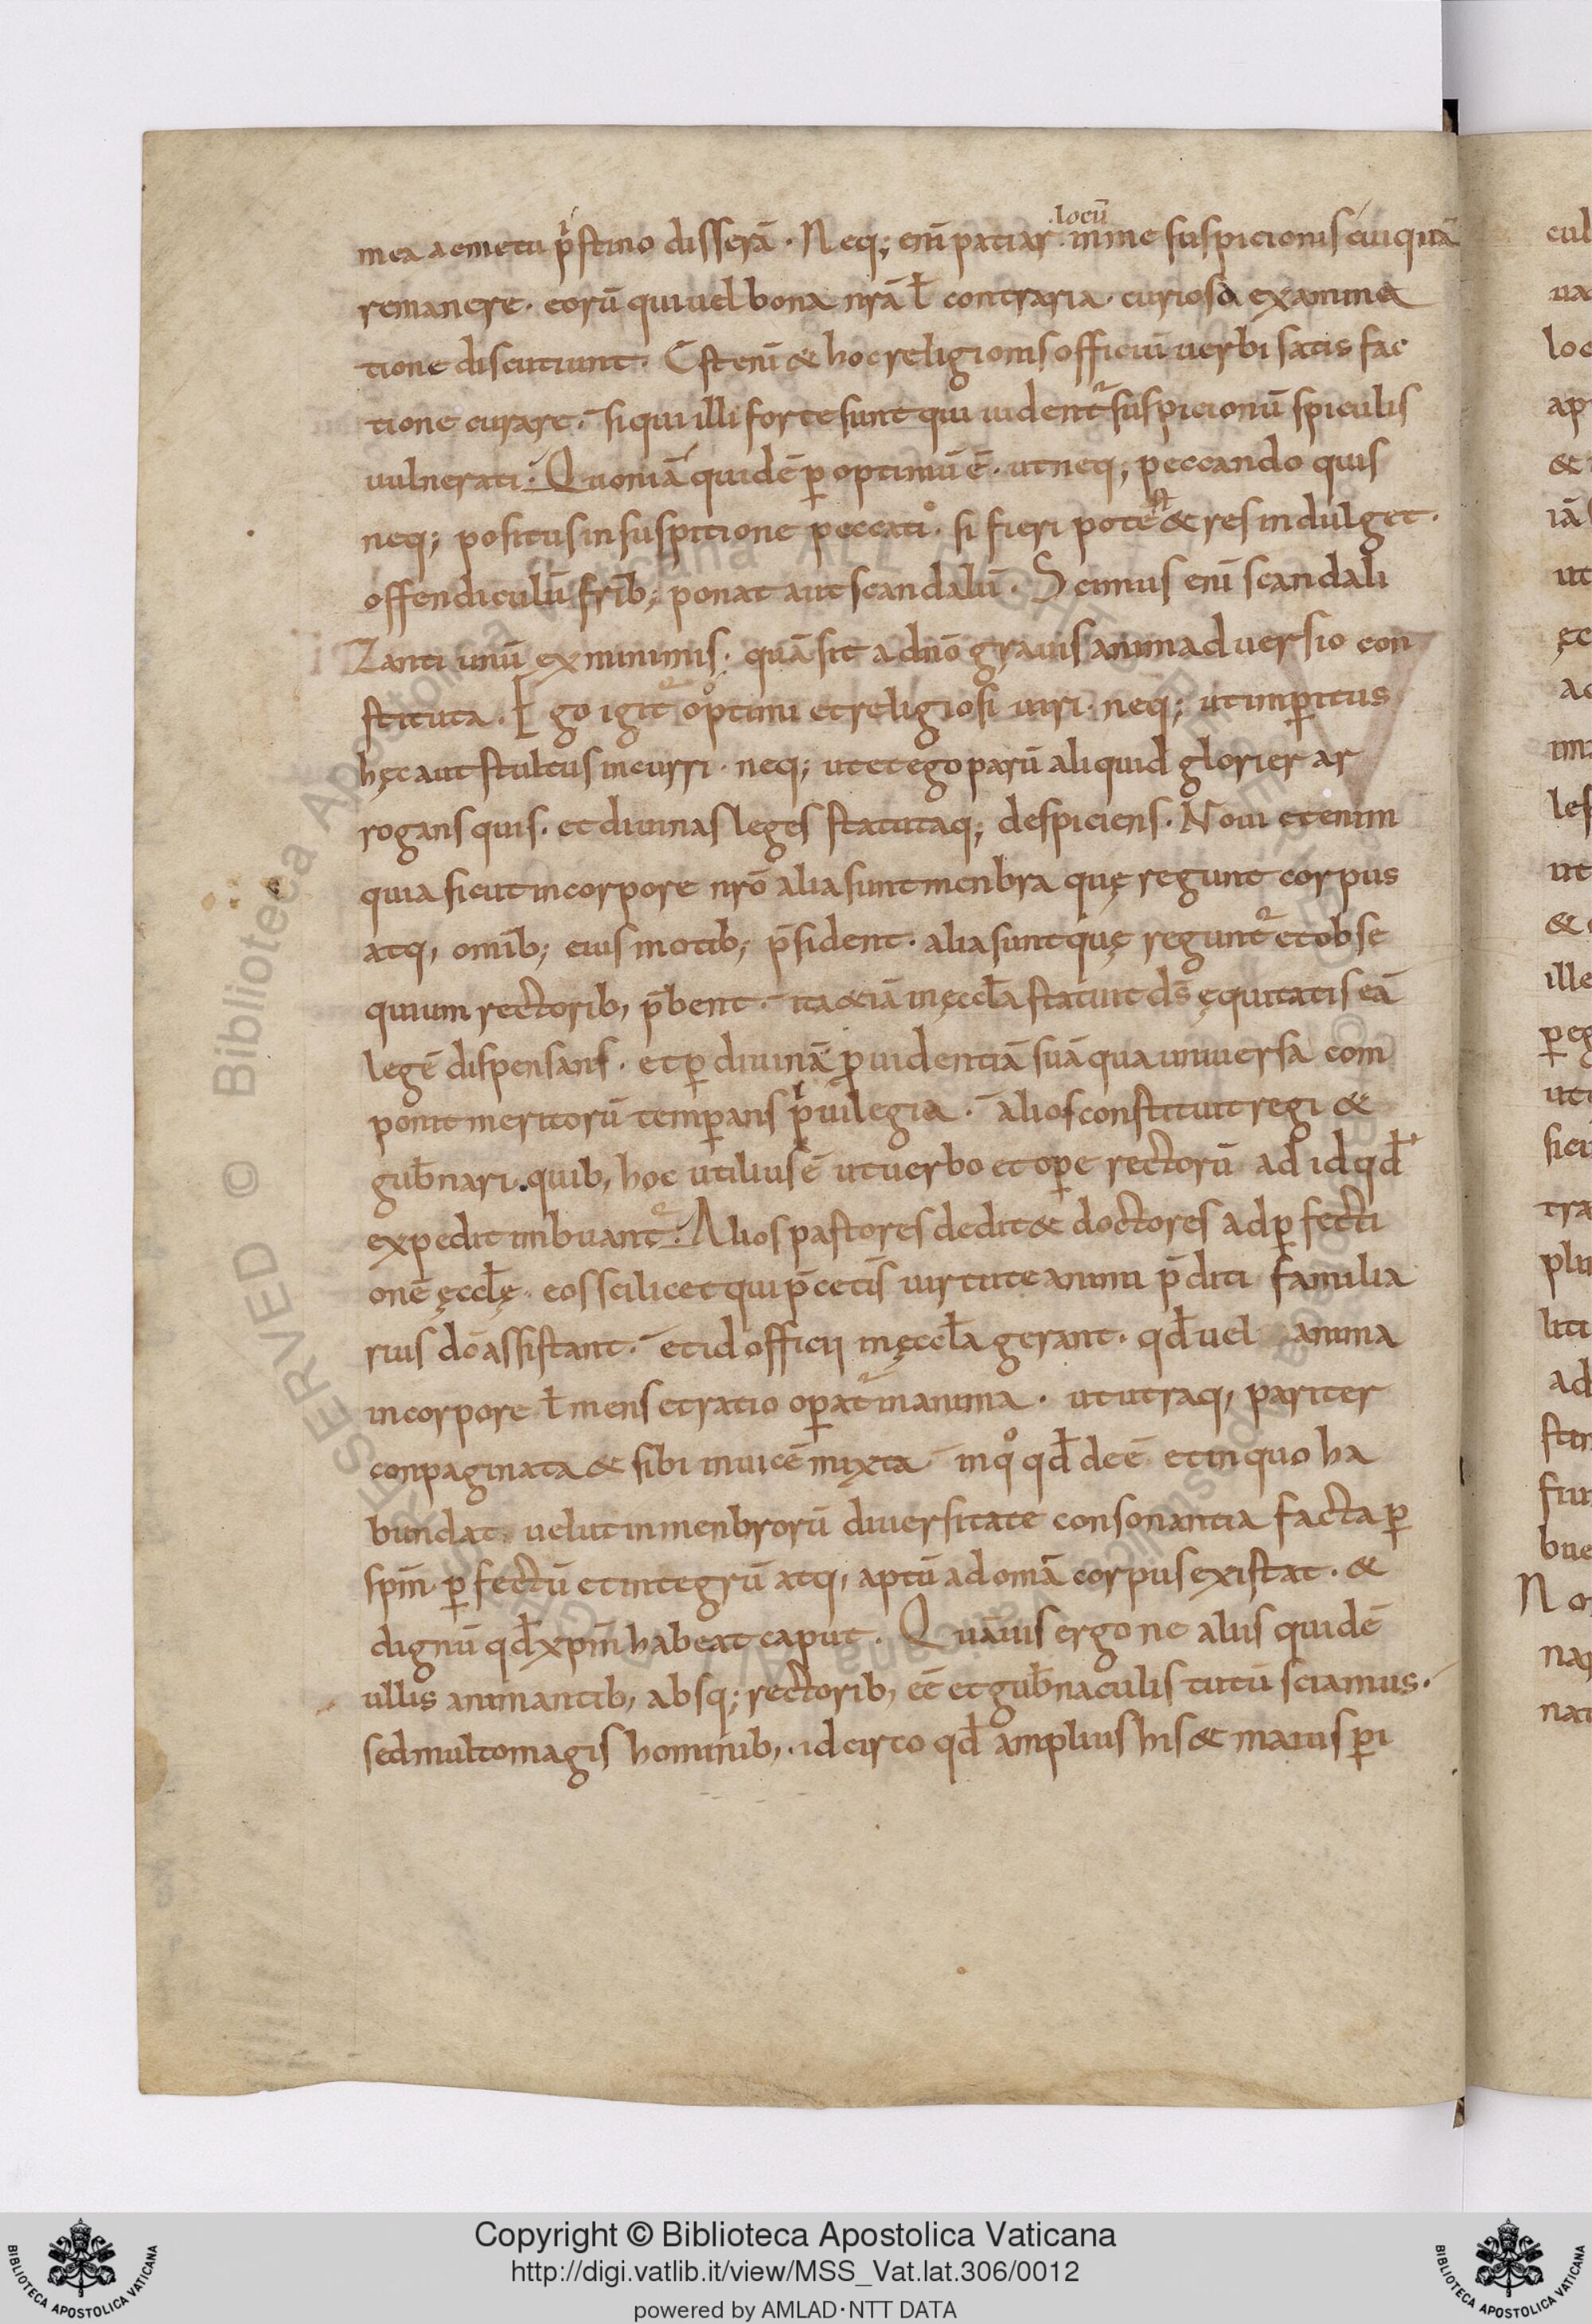 mea a emetu p̄stino disserā · Neq; enī patiar · locū in me suspicionis cuiquā
remanere · eorū qui uel bona nr̄a ł contraria · curiosa examina
tione discutiunt · Est enī & hoc religionis officiū uerbi satis fac
tione curare · si qui illi forte sunt qui uident᷑ suspicionū spiculis
uulnerati · Quoniā quidē ꝑ optimū ē · ut neq; peccando quis
neq; positus in suspitione peccati · si fieri potest & res indulget ·
offendiculū fr̄ib; ponat aut scandalū · Scimus enī scandali
zanti unū ex minimis · quā sit a dn̄o grauis animaduersio con
stituta · Ego igit᷑ optimi et religiosi uiri · neq; ut imꝑitus
hęc aut stultus incurri · neq; ut et ego parū aliquid glorier ar
rogans quis · et diuinas leges statutaq; despiciens · Noui etenim
quia sicut in corpore nr̄o alia sunt menbra quę regunt corpus
atq, omīb; eius motib; p̄sident · alia sunt quę regunt᷑ et obse
quium rectorib, p̄bent · ita &iā in ęccła statuit ds̄ ęquitatis eā
legē dispensans · et ꝑ diuinā ꝓuidentiā suā qua uniuersa com
ponit meritorū temꝑans priuilegia · alios constituit regi &
gub̄nari · quib, hoc utilius ē ut uerbo et oꝑe rectorū ad id qd̄
expedit inbuant᷑ · Alios pastores dedit & doctores ad ꝑfecti
onē ęccłę · eos scilicet qui p̄ cet̄is uirtute animi p̄diti familia
rius dō assistant · et id officii in ęccła gerant · qd̄ uel anima
in corpore ł mens et ratio oꝑat᷑ in anima · ut utraq, pariter
conpaginata & sibi inuicē mixta in qͦ qd̄ deē et in quo ha
bundat · uelut in menbrorū diuersitate consonantia facta ꝑ
spm̄ · ꝑfectū et integrū atq, aptū ad omā corpus existat · &
dignū qd̄ xpm̄ habeat caput · Quāuis ergo ne aliis quidē
ullis animantib, absq; rectorib, eē et gub̄naculis tutū sciamus ·
sed multo magis hominib, · idcirco qd̄ amplius his & maius ꝑi
cul
ua
loc
ap
&
iā
ut
ęc
ac
ima
les
ut
&
ille
ꝑeg
uti
sicu
tra
plu
liti
ad
stin
frue
bue
No
naq
nat
Copyright © Biblioteca Apostolica Vaticana
http://digi.vatlib.it/view/MSS_Vat.lat.306/0012
powered by AMLAD·NTT DATA
BIBLIOTECA APOSTOLICA VATICANA
BIBLIOTECA APOSTOLICA VATICANA